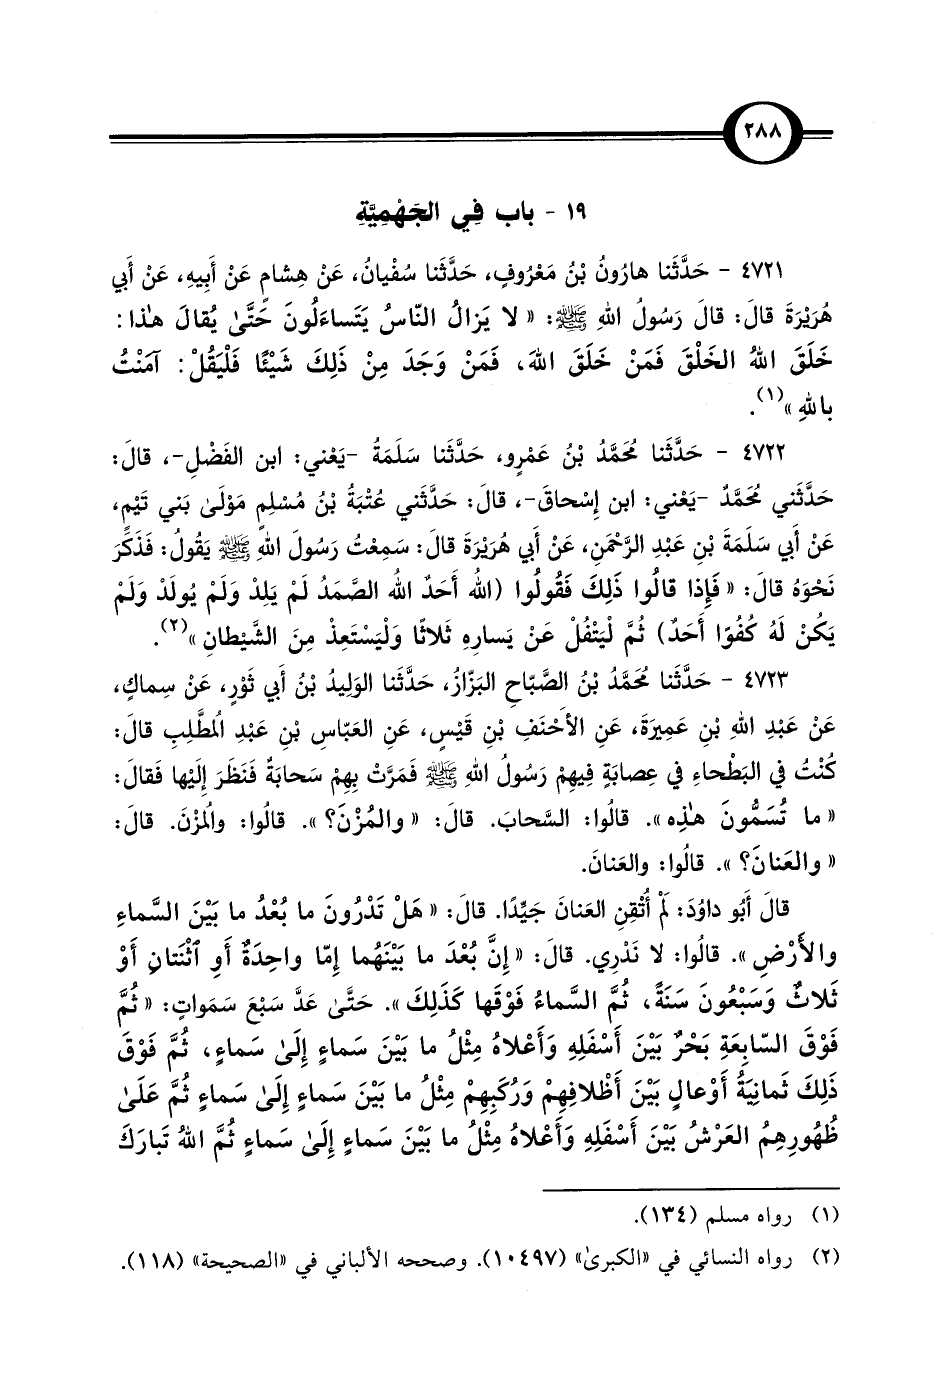 ٢٨٨
١٩ - باب فِي الجَهْمِيَّةِ
٤٧٢١ - حَدَّثَنا هارُونُ بْنُ مَعْرُوفٍ، حَدَّثَنا سُفْيانُ، عَنْ هِشامٍ عَنْ أَبِيهِ، عَنْ أَبي
هُرَيْرَةَ قالَ: قالَ رَسُولُ اللهِ ﷺ: « لا يَزالُ النّاسُ يَتَساءَلُونَ حَتَّىٰ يُقالَ هٰذا:
خَلَقَ اللهُ الخَلْقَ فَمَنْ خَلَقَ اللهَ، فَمَنْ وَجَدَ مِنْ ذَلِكَ شَيْئًا فَلْيَقُلْ: آمَنْتُ
باللهِ »(١).
٤٧٢٢ - حَدَّثَنا مُحَمَّدُ بْنُ عَمْرٍو، حَدَّثَنا سَلَمَةُ -يَعْني: ابن الفَضْلِ-، قالَ:
حَدَّثَني مُحَمَّدٌ -يَعْني: ابن إِسْحاقَ-، قالَ: حَدَّثَني عُتْبَةُ بْنُ مُسْلِمٍ مَوْلَىٰ بَني تَيْمٍ،
عَنْ أَبي سَلَمَةَ بْنِ عَبْدِ الرَّحْمَنِ، عَنْ أَبي هُرَيْرَةَ قالَ: سَمِعْتُ رَسُولَ اللهِ ﷺ يَقُولُ: فَذَكَرَ
نَحْوَهُ قالَ: « فَإِذا قالُوا ذَلِكَ فَقُولُوا (اللهُ أَحَدٌ اللهُ الصَّمَدُ لَمْ يَلِدْ وَلَمْ يُولَدْ وَلَمْ
يَكُنْ لَهُ كُفُوًا أَحَدٌ) ثُمَّ لْيَتْفُلْ عَنْ يَسارِهِ ثَلاثًا وَلْيَسْتَعِذْ مِنَ الشَّيْطانِ »(٢).
٤٧٢٣ - حَدَّثَنا مُحَمَّدُ بْنُ الصَّبّاحِ البَزّازُ، حَدَّثَنا الوَلِيدُ بْنُ أَبي ثَوْرٍ، عَنْ سِماكٍ،
عَنْ عَبْدِ اللهِ بْنِ عَمِيرَةَ، عَنِ الأَحْنَفِ بْنِ قَيْسٍ، عَنِ العَبّاسِ بْنِ عَبْدِ المُطَّلِبِ قالَ:
كُنْتُ في البَطْحاءِ في عِصابَةٍ فِيهِمْ رَسُولُ اللهِ ﷺ فَمَرَّتْ بِهِمْ سَحابَةٌ فَنَظَرَ إِلَيْها فَقالَ:
« ما تُسَمُّونَ هٰذِه ». قالُوا: السَّحابَ. قالَ: « والمُزْنَ؟ ». قالُوا: والمُزْنَ. قالَ:
« والعَنانَ؟ ». قالُوا: والعَنانَ.
قالَ أَبُو داوُدَ: لَمْ أُتْقِنِ العَنانَ جَيِّدًا. قالَ: « هَلْ تَدْرُونَ ما بُعْدُ ما بَيْنَ السَّماءِ
والأَرْضِ ». قالُوا: لا نَدْرِي. قالَ: « إِنَّ بُعْدَ ما بَيْنَهُما إِمّا واحِدَةٌ أَوِ ٱثْنَتانِ أَوْ
ثَلاثٌ وَسَبْعُونَ سَنَةً، ثُمَّ السَّماءُ فَوْقَها كَذَلِكَ ». حَتَّىٰ عَدَّ سَبْعَ سَمَواتٍ: « ثُمَّ
فَوْقَ السّابِعَةِ بَحْرٌ بَيْنَ أَسْفَلِهِ وَأَعْلاهُ مِثْلُ ما بَيْنَ سَماءٍ إِلَىٰ سَماءٍ، ثُمَّ فَوْقَ
ذَلِكَ ثَمانِيَةُ أَوْعالٍ بَيْنَ أَظْلافِهِمْ وَرُكَبِهِمْ مِثْلُ ما بَيْنَ سَماءٍ إِلَىٰ سَماءٍ ثُمَّ عَلَىٰ
ظُهُورِهِمُ العَرْشُ بَيْنَ أَسْفَلِهِ وَأَعْلاهُ مِثْلُ ما بَيْنَ سَماءٍ إِلَىٰ سَماءٍ ثُمَّ اللهُ تَبارَكَ
(١) رواه مسلم (١٣٤).
(٢) رواه النسائي في «الكبرىٰ» (١٠٤٩٧). وصححه الألباني في «الصحيحة» (١١٨).